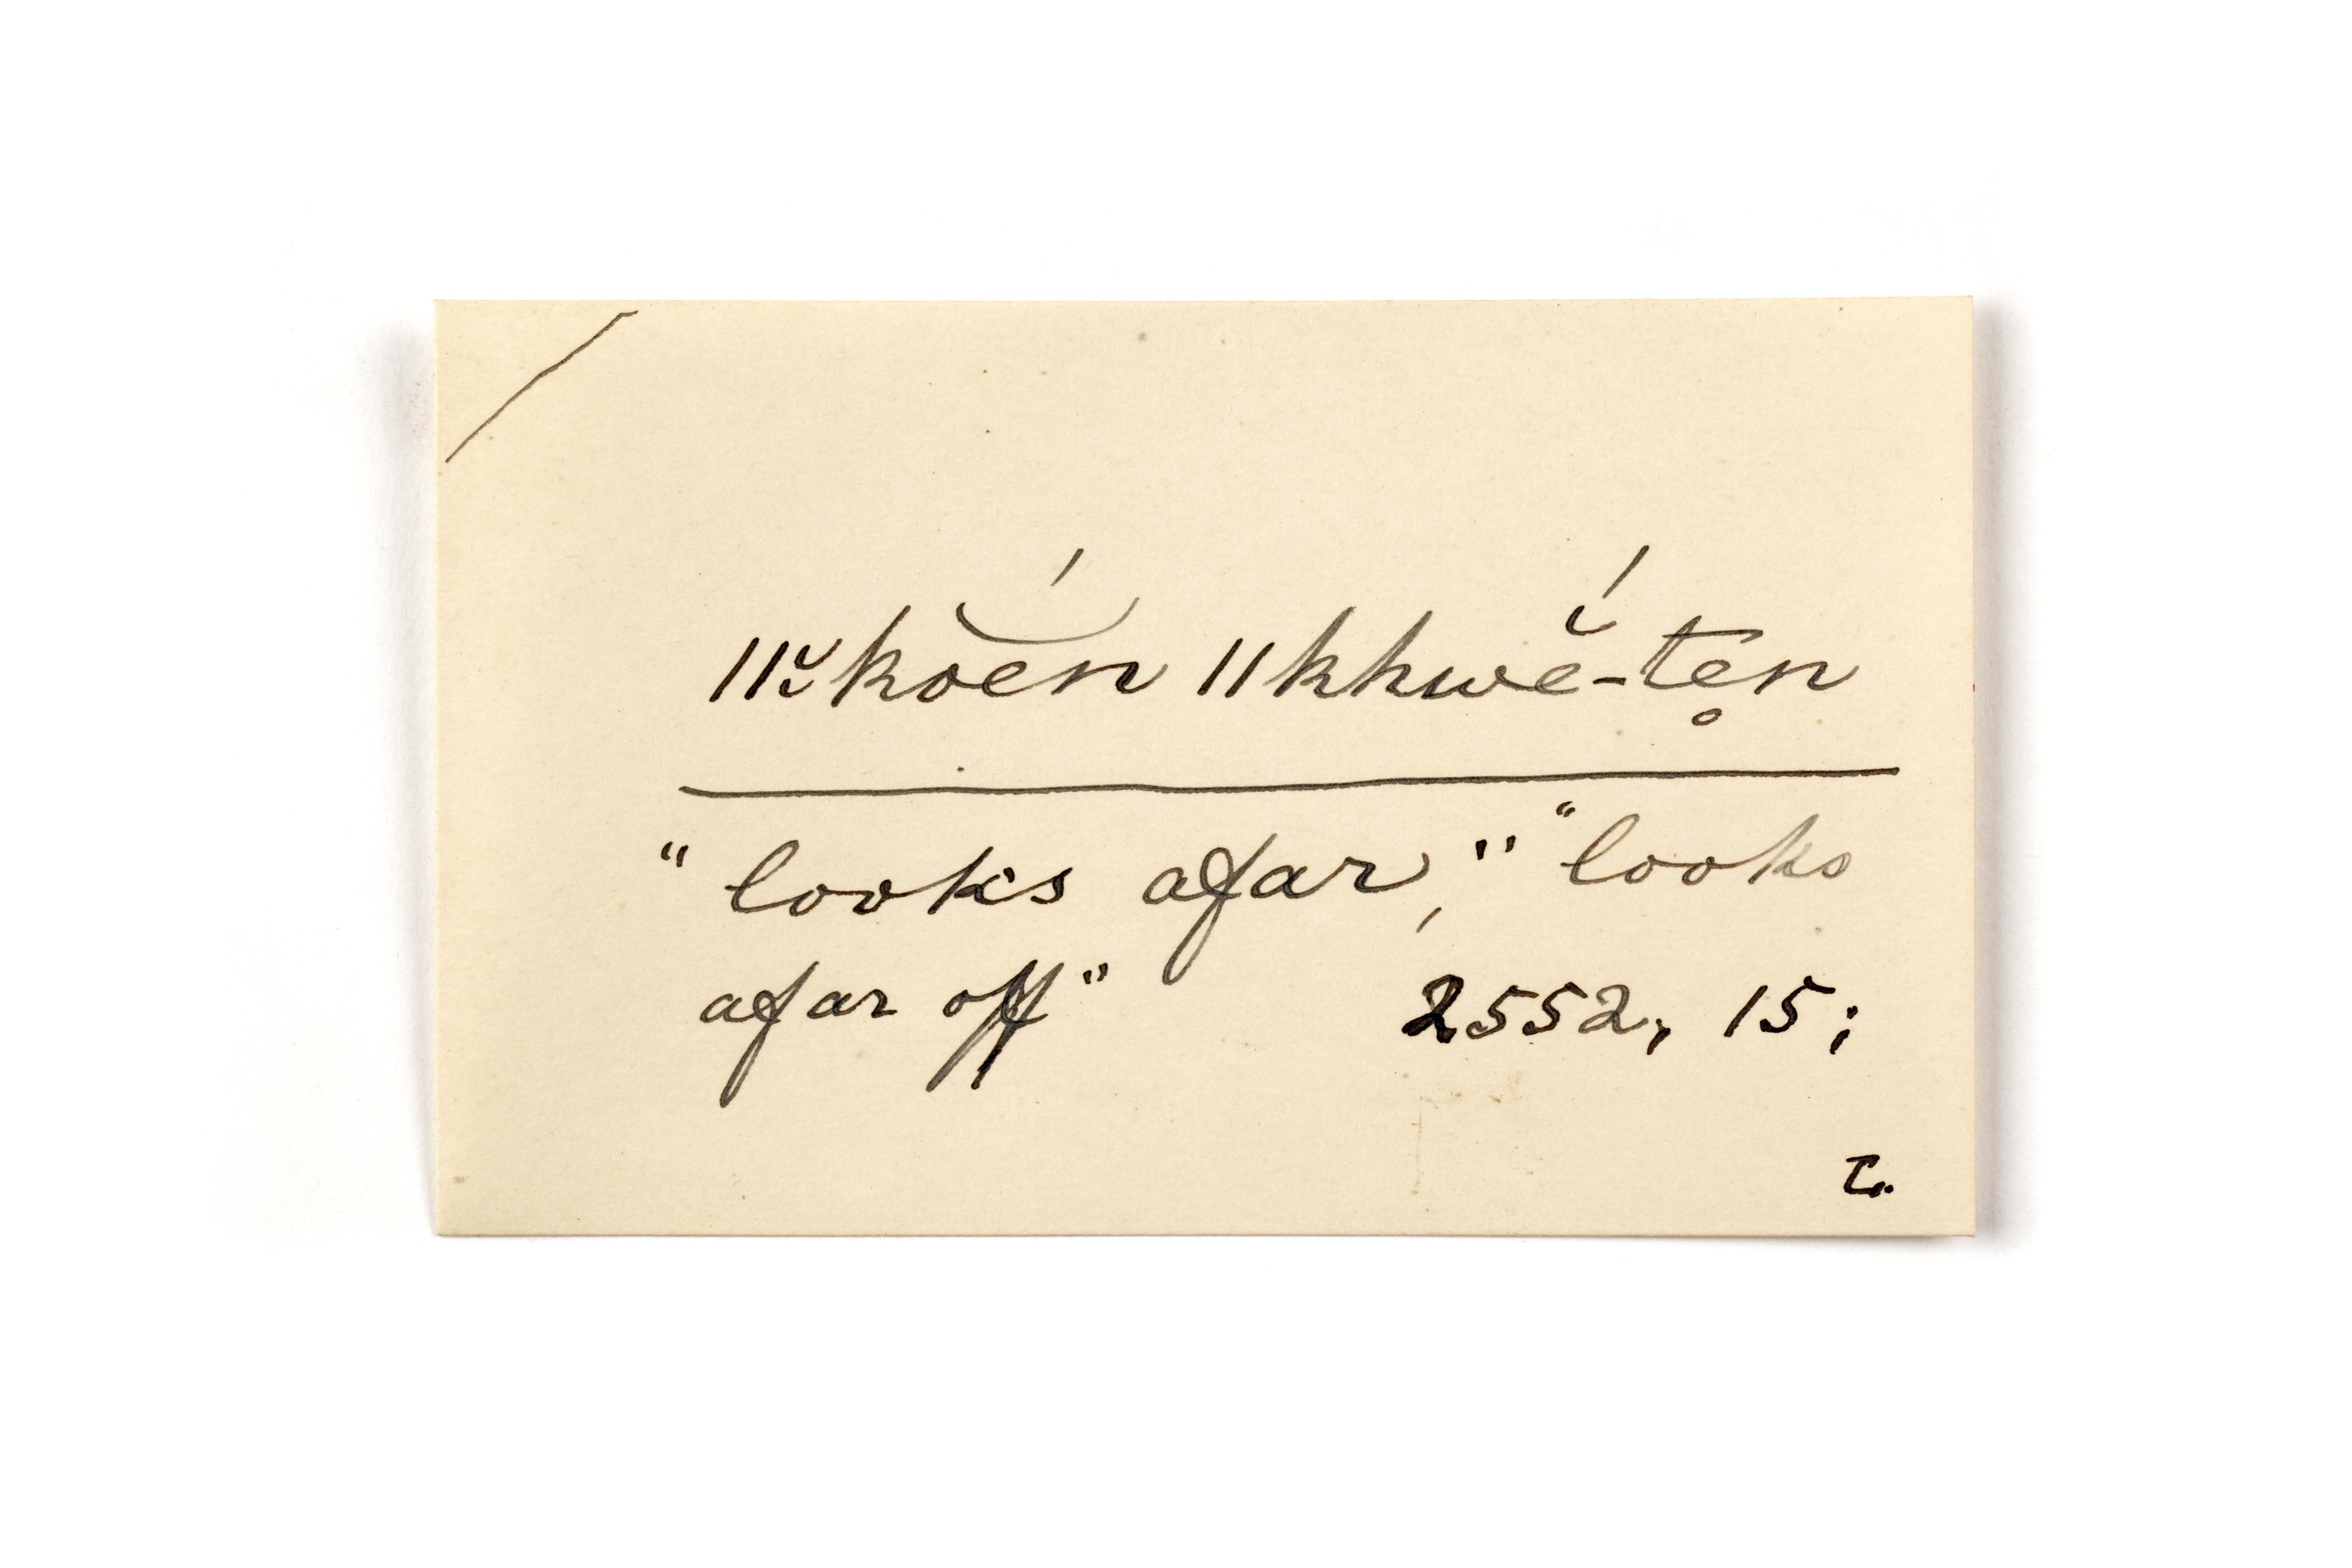 ǁ̆koé̆n ǁkhwĕ́-ten̥
"looks afar," "looks
afar off" 2552, 15;
T.